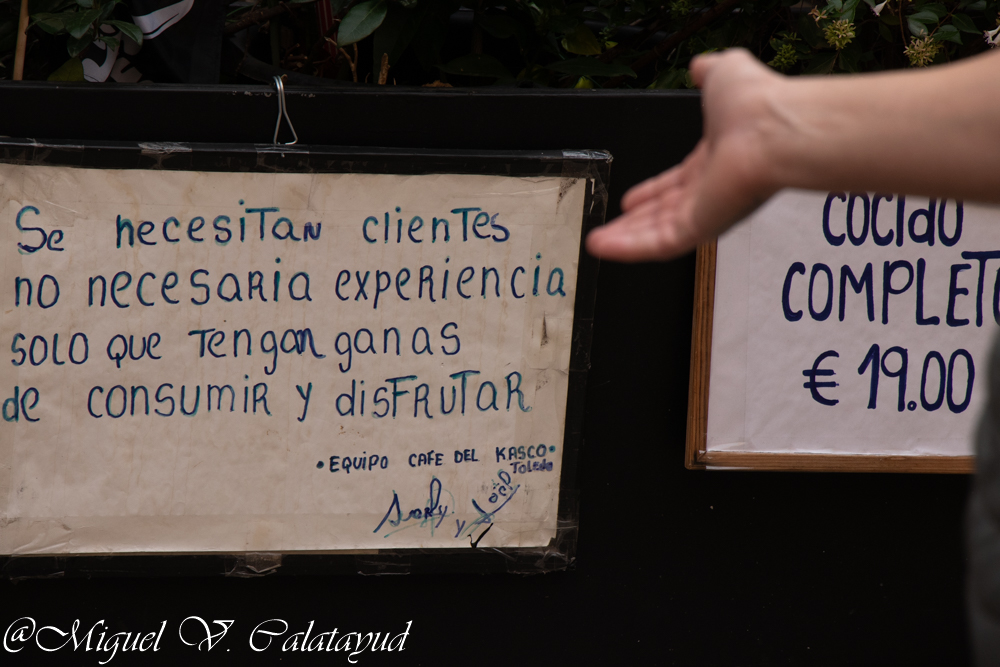 Se necesitan clientes
no necesaria experiencia
solo que tengan ganas
de consumir y disfrutar
•EQUIPO CAFE DEL KASCO•
Toledo
y
COCIdO
COMPLETO
€ 19.00
@Miguel V. Calatayud